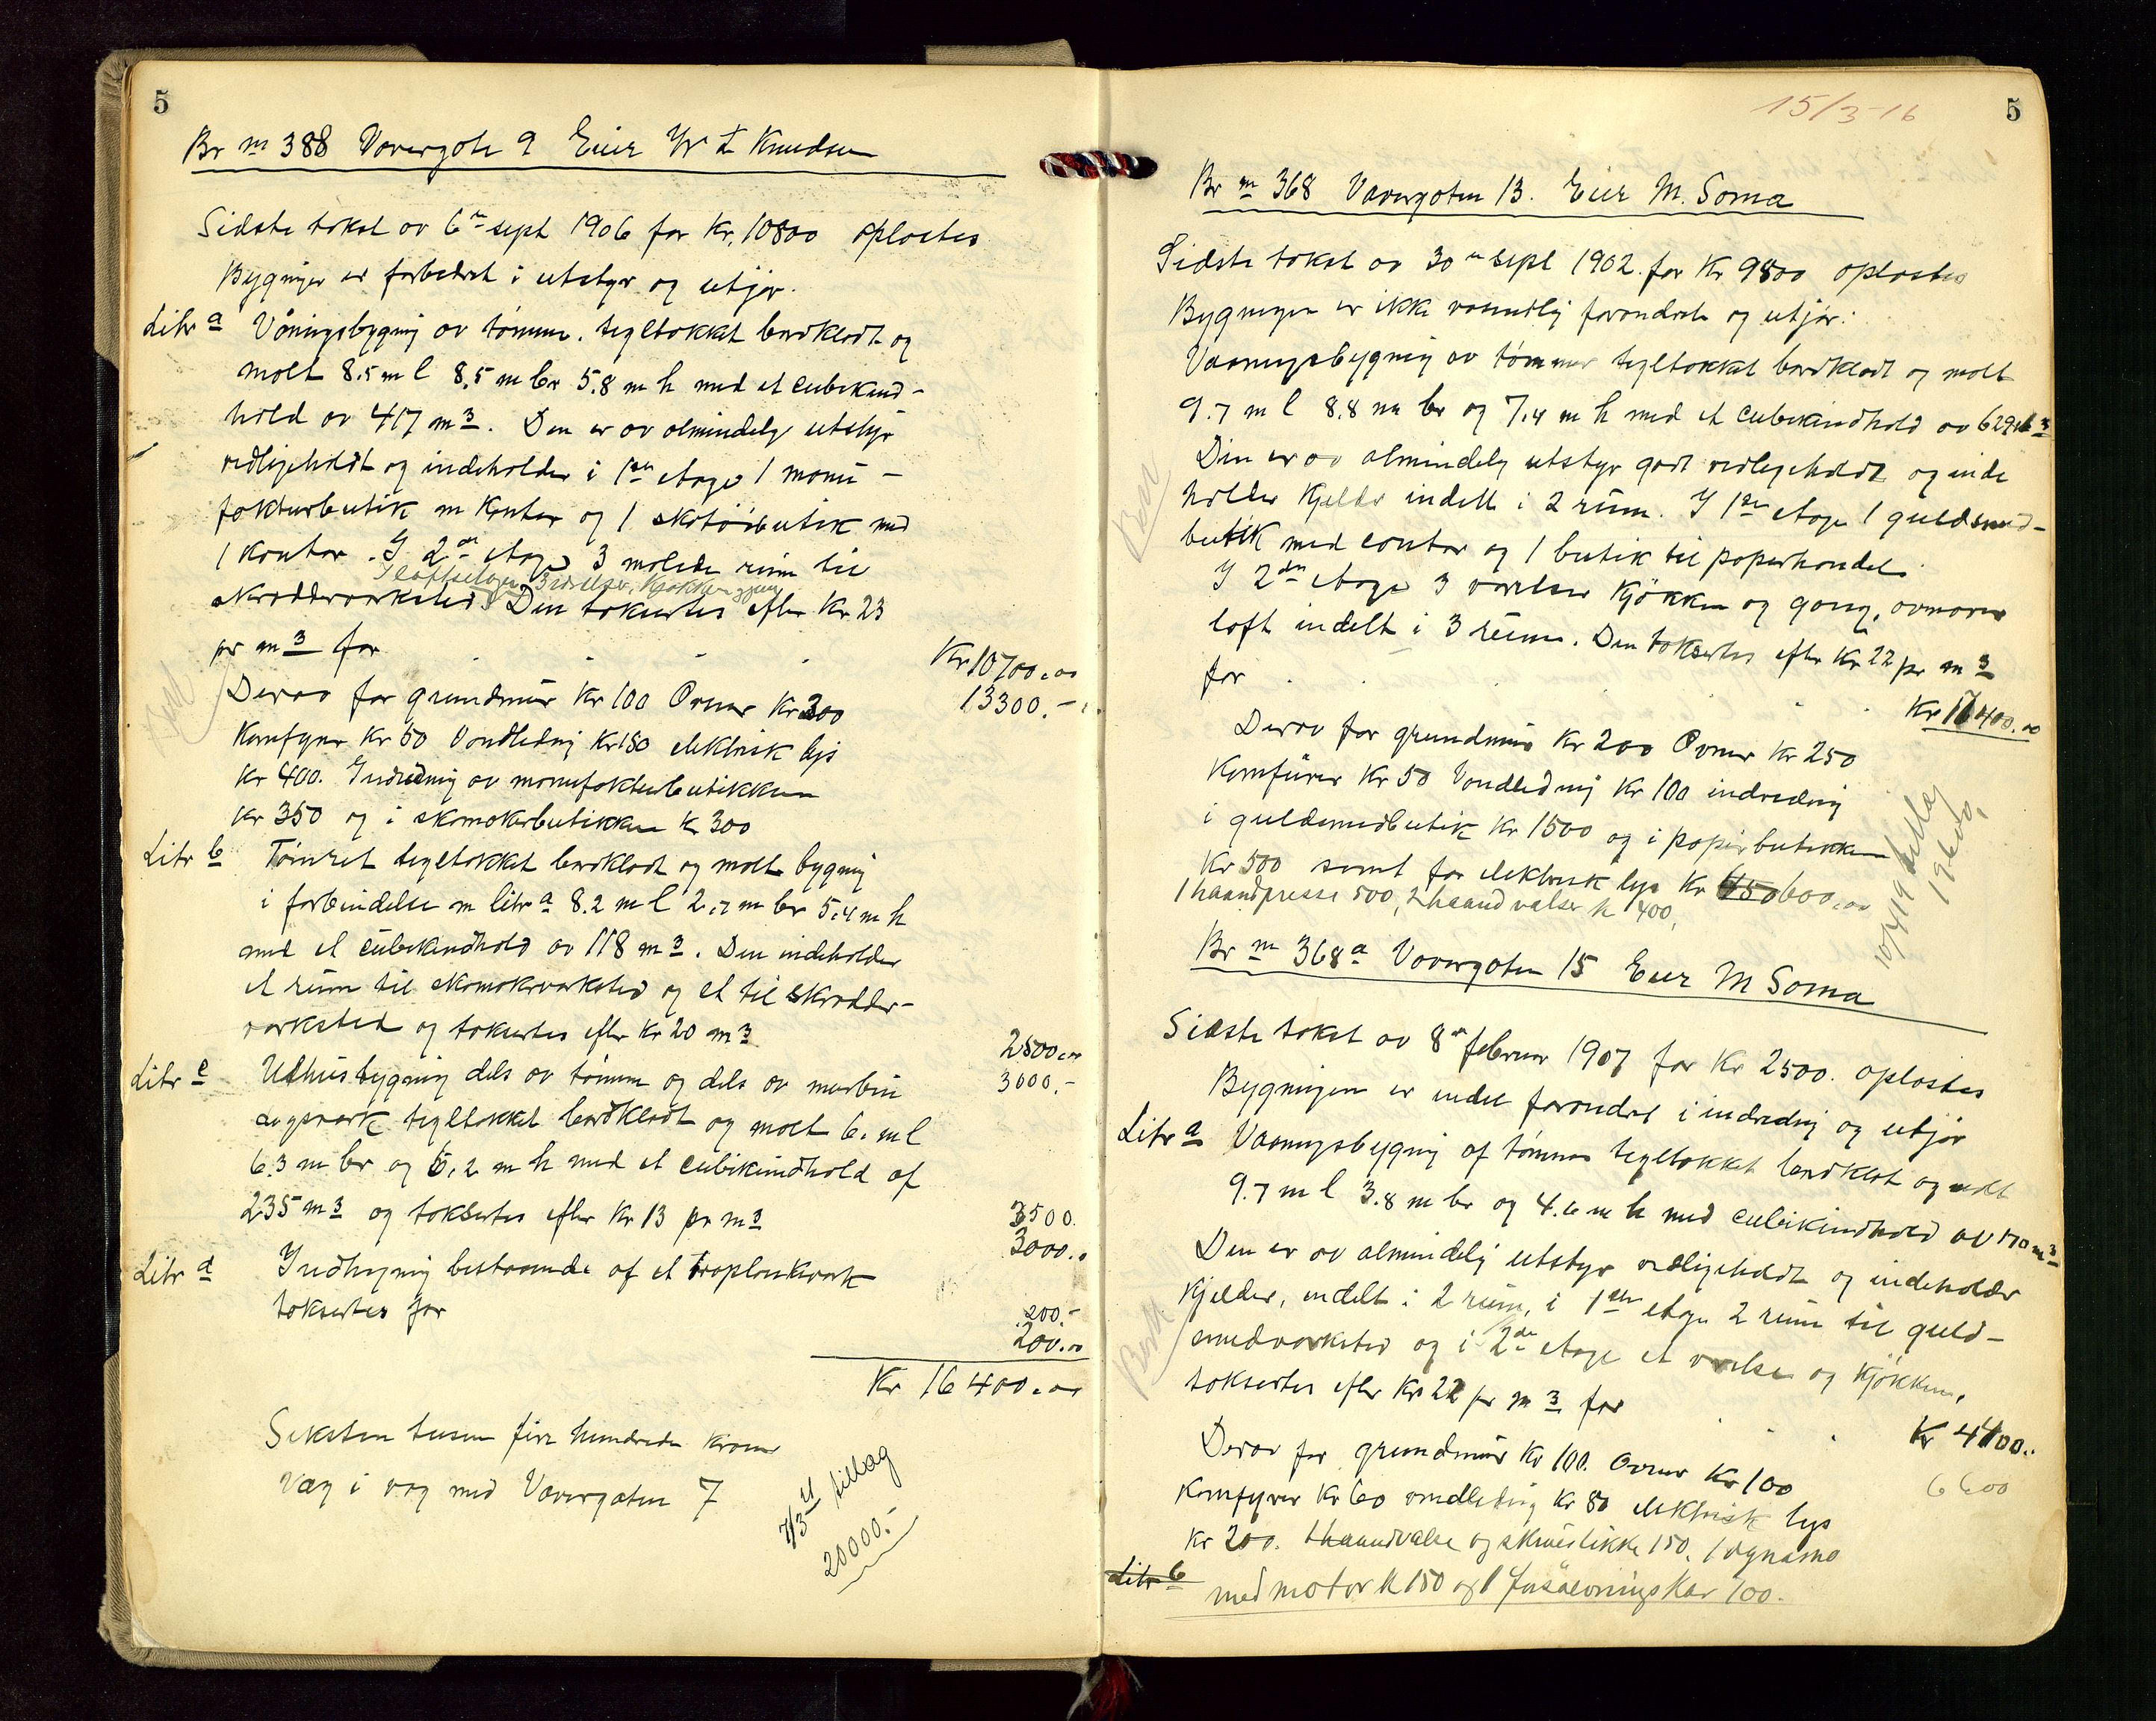 5
Br no 388 Vavergate 9 Eier W L Knudsen
Sidste takst av 6te sept 1906 for Kr. 10800 oplæstes
Bygninger er forbedret i utstyr og utgjør.
Litr a Våningsbygning av tømmer, tegltækket bordklædt og
malt 8.5 m l 8.5 m br 5.8 m h med et cubikind-
hold av 417 m3. Den er av almindelig utstyr
vedligeholdt og indeholder i 1ste etage 1 manu-
fakturbutik m kontor og 1 skotöibutik med
1 kontor. I 2den etage 3 malede rum til
I loftsetagen 3 værelser, kjøkken gang
skrædderverksted. Den takseres efter Kr 23
pr m3 for
Kr 10700.00
13300.-
Derav for grundmur Kr 100 Ovner Kr 300
Komfyrer Kr 50 Vandledning Kr 150 elektrisk lys
Kr 400. Indredning av manufakturbutikken
Kr 350 og i skomakerbutikken K 300
Litr b Tömret tegltækket bordklædt og malt bygning
i forbindelse m litr a 8.2 m l 2.7 m br 5.4 m h
med et cubikindhold av 118 m3. Den indeholder
et rum til skomakerverksted og et til skrædder-
verksted og takseres efter Kr 20 m3
2500.00
3000.-
Litr c Uthusbygning dels av tømmer og dels av murbin
dingsverk tegltækket bordklædt og malt 6. m l
6.3 m br og 6.2 m h med et cubikindhold af
235 m3 og takseres efter Kr 13 pr m3
3500.
3000.0
Litr d Indhegning bestaaende af et træplankverk
takseres for
200.-
200.00
Kr 16400.00
Seksten tusen fire hundrede kroner
Væg i væg med Vavergaten 7
7/3 21 tillæg
20000.-
15/3-16
5
Br no 368 Vavergaten 13. Eier M. Soma
Sidste takst av 30te Sept 1902. for Kr 9800 oplæstes
Bygningen er ikke væsentlig forandret og utgjør:
Vaaningsbygning av tömmer tegltækket bordklædt og malt
9.7 m l 8.8 m br og 7.4 m h med et cubikindhold av 629 m3
Den er av almindelig utstyr godt vedligeholdt og inde
holder Kjelder indelt i 2 rum. I 1ste etage 1 guldsmed-
butik med contor og 1 butik til papirhandel.
I 2den etage 3 værelser kjøkken og gang, ovenover
loft indelt i 3 rum. Den takseres efter Kr 22 pr m3
for
Kr 17400.00
Derav for grundmur Kr 200 Ovner Kr 250
Komfürer Kr 50 Vandledning Kr 100 indredning
i guldsmedbutik Kr 1500 og i papirbutikken
Kr 500 samt for elektrisk lys Kr 450 600.00
1 haandpresse 500, 2 haandvalser K 400,
10/4 19 tillæg
Br no 368a Vavergaten 15 Eier M Soma
Sidste takst av 8de februar 1907 for Kr 2500. oplæstes
Bygningen er endel forandret i indredning og utgjør
Litr a Vaaningsbygning af tømmer tegltækket bordklædt og malt
9.7 m l 3.8 m br og 4.6 m h med cubikindhold av 170 m3
Den er av almindelig utstyr vedligeholdt og indeholder
Kjelder, indelt i 2 rum, i 1ste etage 2 rum til guld-
smedverksted og i 2den etage et værelse og kjøkken,
takseres efter Kr 22 pr m3 for
Kr 4400..
6600
Derav for grundmur Kr 100. Ovner Kr 100
Komfyrer Kr 60 vandledning Kr 80 elektrisk lys
Kr 200. 1 haandvalse og skruestikke 150. 1 dynamo
Litr b
med motor K 150 og 1 forsølvningskar 100.